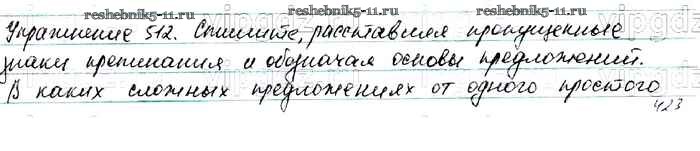 reshebnik5-11.ru reshebnik5-11.ru
Упражнение 512. Спишите, расставляя пропущенные
знаки препинания и обозначая основы предложений.
В каких сложных предложениях от одного простого
423
reshebnik5-11.ru reshebnik5-11.ru